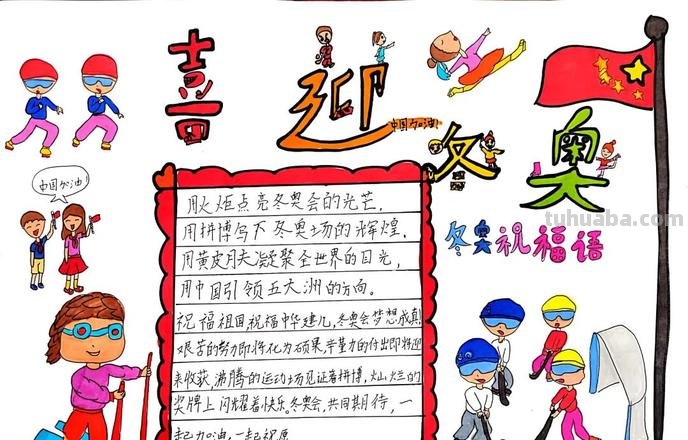 喜迎冬奥
中国加油!
中国加油!
冬奥祝福语
tuhuaba.com
用火炬点亮冬奥会的光芒,
用拼博写下冬奥场的辉煌,
用黄皮肤凝聚全世界的目光,
用中国引领五大洲的方向。
祝福祖国,祝福中华健儿,冬奥会梦想成真
艰苦的努力即将化为硕果,辛勤的付出即将迎
来收获,沸腾的运动场见证着拼搏,灿烂的
奖牌上闪耀着快乐。冬奥会,共同期待,一
起加油,一起祝愿